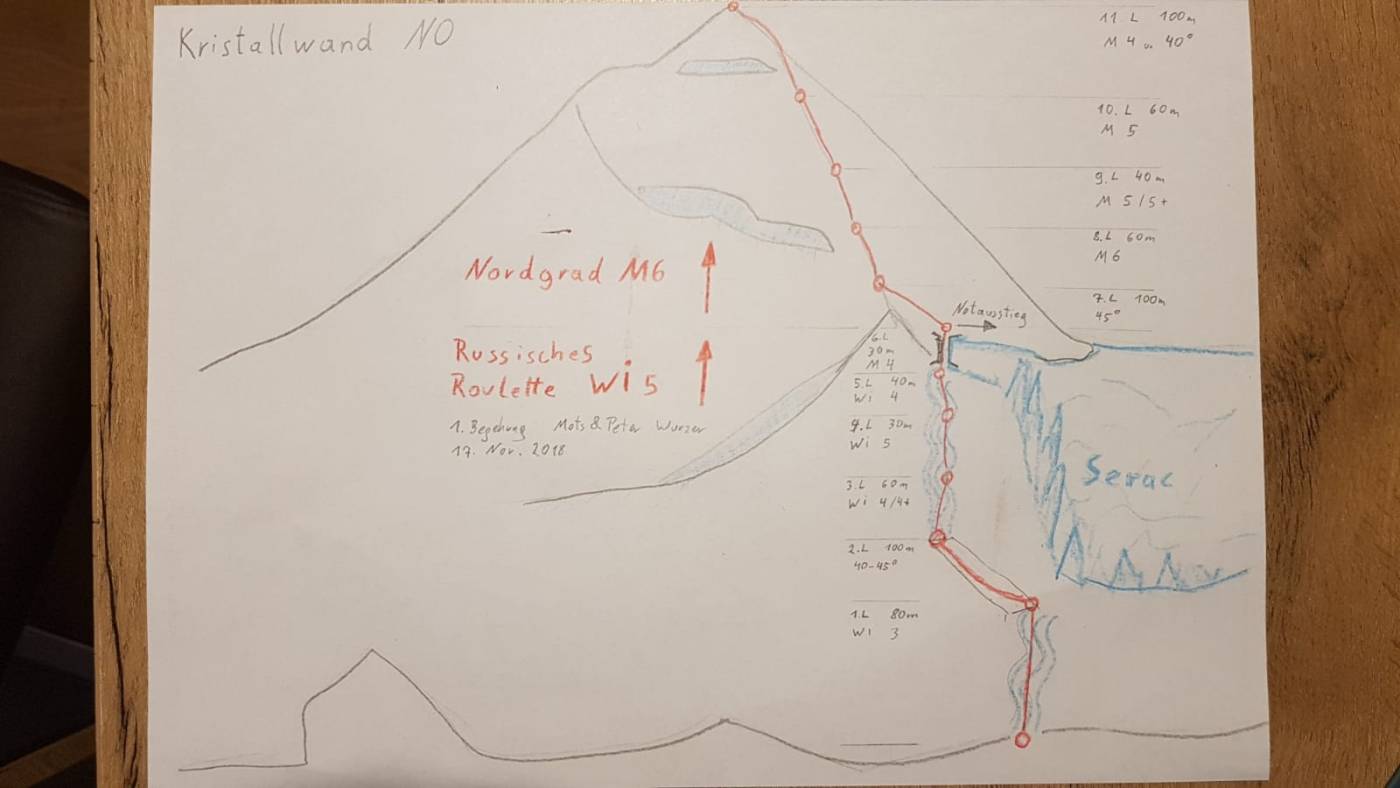 Kristallwand NO
11. L 100m
M 4 u. 40°
10. L 60m
M 5
9. L 40m
M 5/5+
8. L 60m
M 6
7. L 100m
45°
Notausstieg
Nordgrad M6
Russisches
Roulette Wi 5
1. Begehung Mots & Peter Wurzer
17. Nov. 2018
6. L
30m
M 4
5. L 40m
Wi 4
4. L 30m
Wi 5
3. L 60m
Wi 4/4+
2. L 100m
40-45°
1. L 80m
Wi 3
Serac